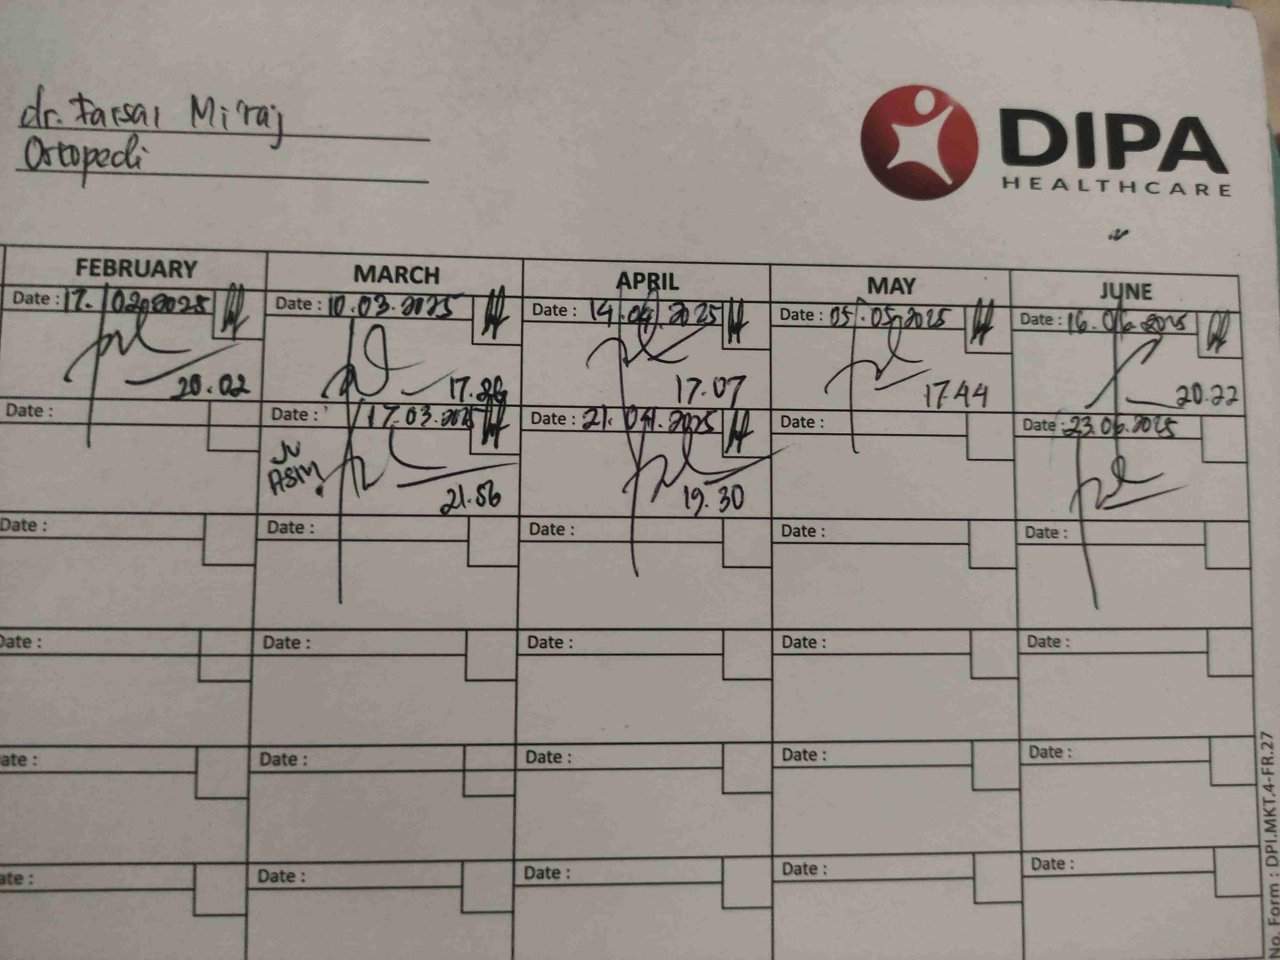 dr. Faisal Mi'raj
Ortopedi
DIPA
HEALTHCARE
FEBRUARY MARCH APRIL MAY JUNE
Date : 17.02.2025 Date : 10.03.2025 Date : 14.04.2025 Date : 05.05.2025 Date : 16.06.2025
20.02 17.07 17.44 20.22
Date : Date : 17.03.2025 Date : 21.04.2025 Date : Date : 23.06.2025
JV
ASM
21.56 19.30
Date : Date : Date : Date : Date :
Date : Date : Date : Date : Date :
ate : Date : Date : Date : Date :
ate : Date : Date : Date : Date :
No. Form : DPI.MKT.4-FR.27